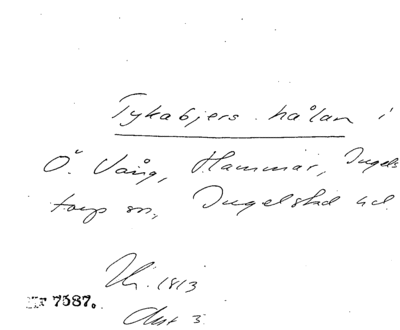 Tykabjers hålan i
Ö. Vång, Hammar, Ingels
torp sn, Ingelstad hd.
1813
7587.
Akt 3.